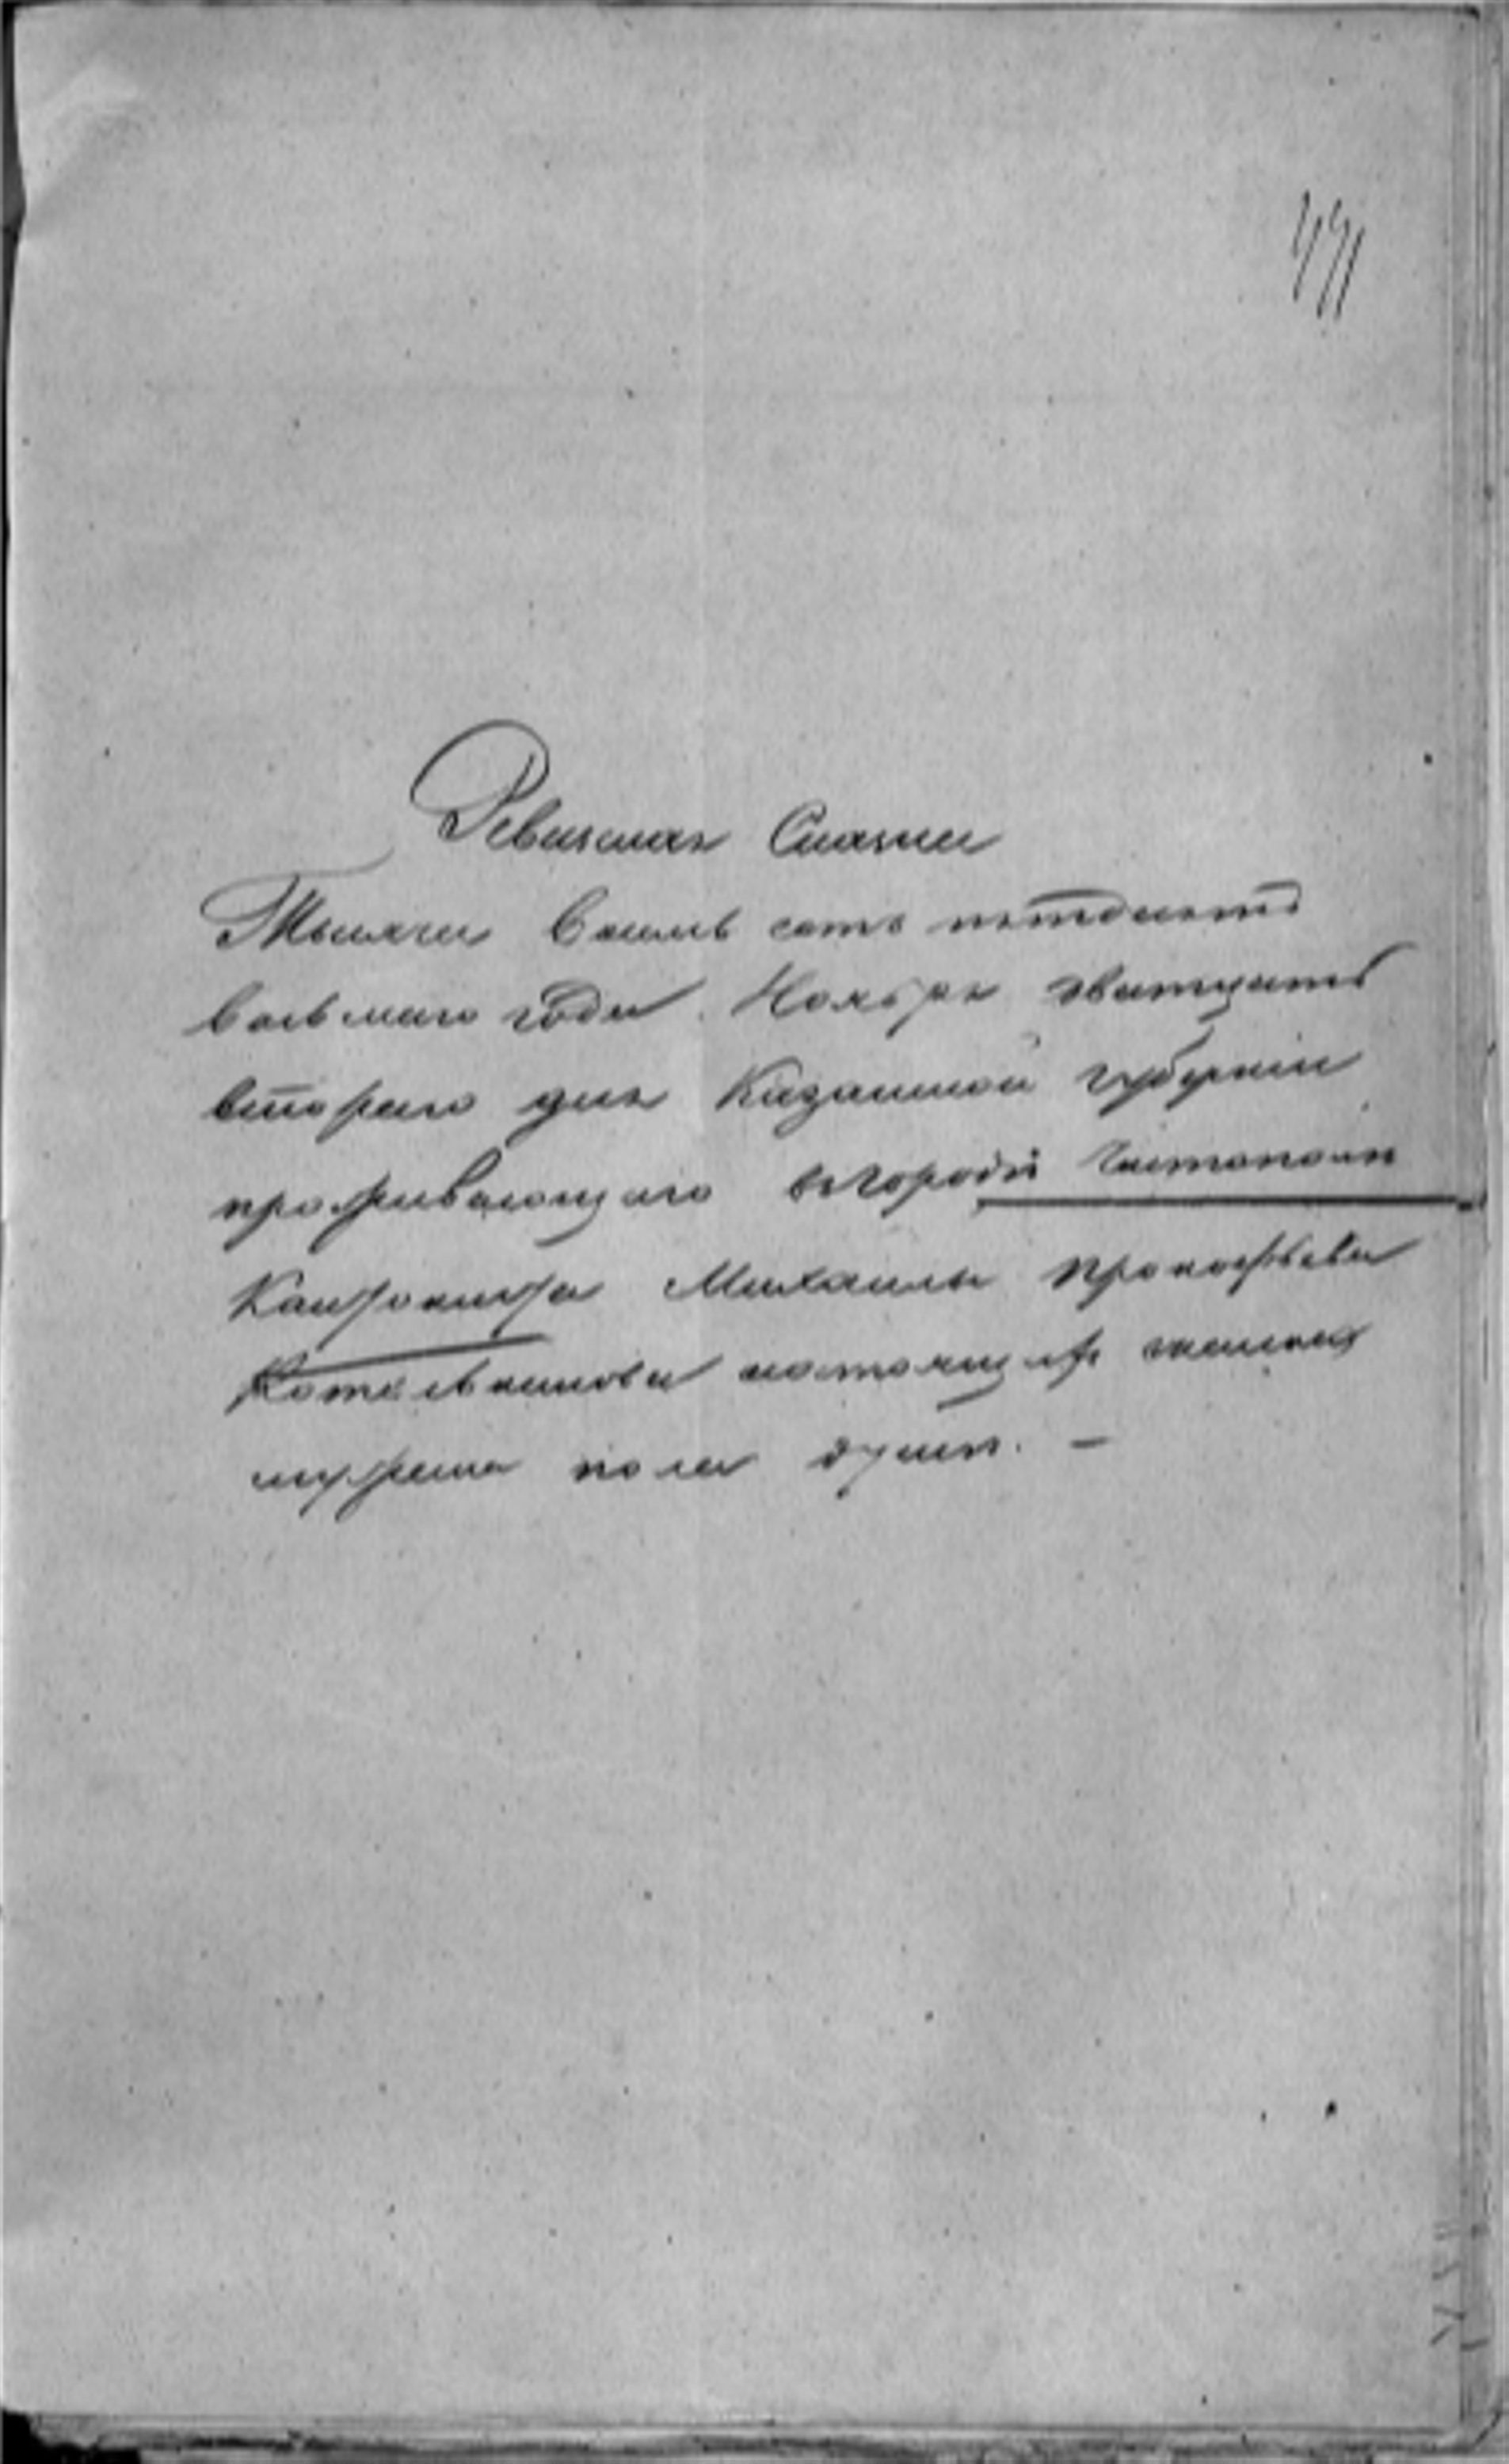 Ревизская Сказка
Тысяча восемь сотъ пятдесятъ
восьмаго года Ноября дватцать
втораго дня Казанской губернии
проживающаго въ городѣ Чистополѣ
Кантониста Михаила Прокофьева
Котельникова о состоящихъ
мужеска пола душъ. —